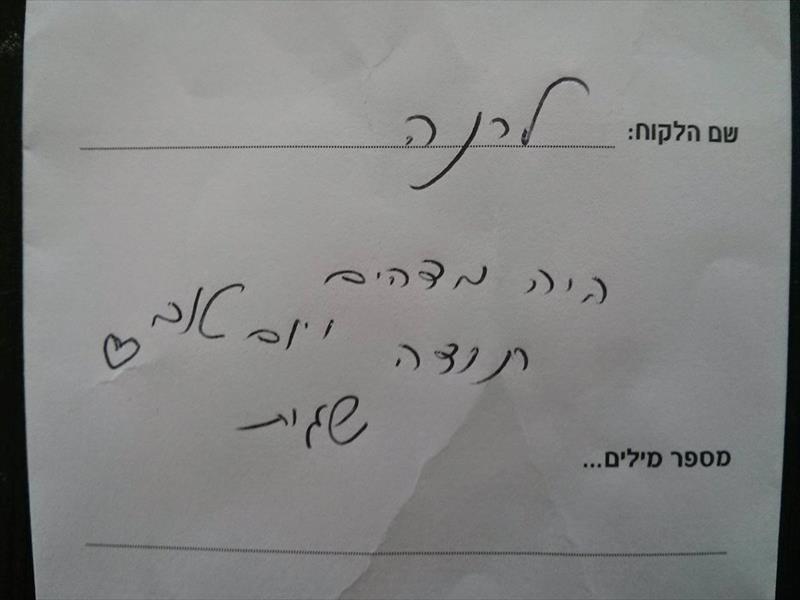 שם הלקוח: לרנה
היה מדהים
תודה ויום טוב ♡
שגית
מספר מילים...